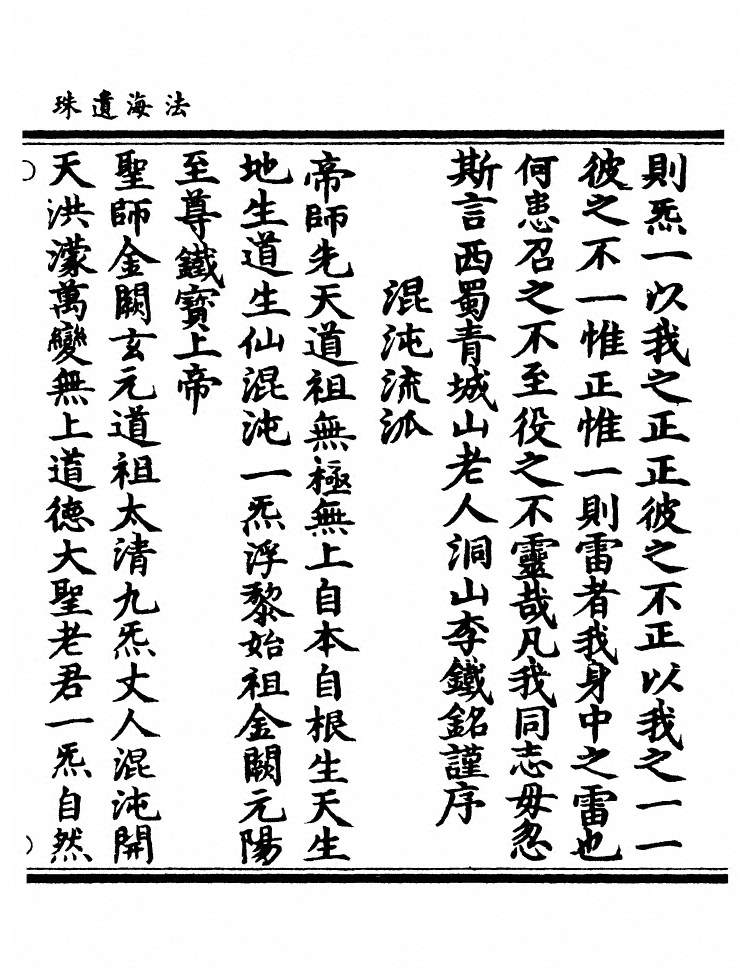 法海遺珠
則炁一以我之正正彼之不正以我之一一
彼之不一惟正惟一則雷者我身中之雷也
何患召之不至役之不靈哉凡我同志毋忽
斯言西蜀青城山老人洞山李鐵銘謹序
混沌流派
帝師先天道祖無極無上自本自根生天生
地生道生仙混沌一炁浮黎始祖金闕元陽
至尊鐵寶上帝
聖師金闕玄元道祖太清九炁丈人混沌開
天洪濛萬變無上道德大聖老君一炁自然